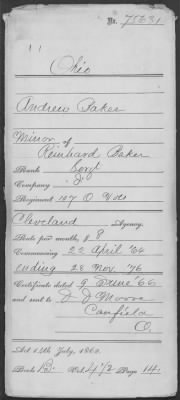 Nr. 75631
Ohio
Andrew Baker
Minor of
Reinhard Baker
Rank Corpl
Company I
Regiment 107 O Vols
Cleveland Agency.
Rate per month, $ 8
Commencing 22 April '64
ending 28 Nov. '76
Certificate dated 9 June 66
and sent to J J Moore
Canfield
O.
Act 14th July, 1862.
Book B. Vol. 4/2 Page 14.